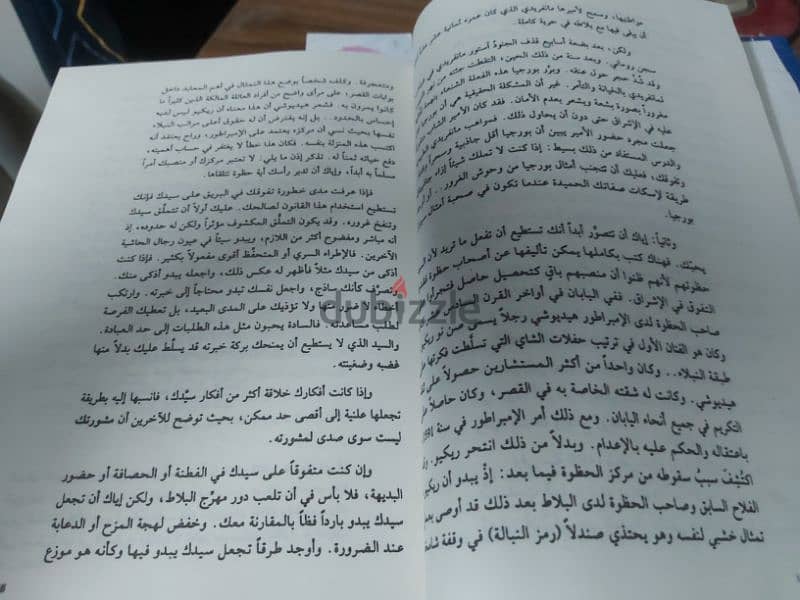 مواطنيها، وسمح لأميرها مانفريدي الذي كان عمره ثمانية عشر
أن يبقى فيها مع بلاطه في حرية كاملة.
ولكن، بعد بضعة أسابيع قذف الجنودُ أستور مانفريدي في
سجن روماني. وبعد سنة من ذلك الحين، التقطت جثته من نهر
وقد شُدّ حجر حول عنقه. وبرَّر بورجيا هذه الفعلة الشنعاء
لمانفريدي بالخيانة والتآمر. غير أن المشكلة الحقيقية هي أن بورجيا
مغروراً بصورة بشعة ويشعر بعدم الأمان. فقد كان الأمير الشاب
عليه في الإشراق حتى دون أن يحاول ذلك. فمواهب مانفريدي
جعلت مجرد حضور الأمير يبين أن بورجيا أقل جاذبية وسحراً
والدرس المستفاد من ذلك بسيط: إذا كنت لا تملك شيئاً إزاء
وتفوقك، فعليك أن تتجنب أمثال بورجيا من وحوش الغرور.. أو
طريقة لإسكات صفاتك الحميدة عندما تكون في صحبة أمثال
بورجيا.
وثانياً: إياك أن تتصوَّر أبداً أنك تستطيع أن تفعل ما تريد لأن
يحبك. فهناك كتب بكاملها يمكن تأليفها عن أصحاب حظوة
حظوتهم لأنهم ظنوا أن منصبهم باقٍ كتحصيل حاصل فتجرأوا
التفوق في الإشراق. ففي اليابان في أواخر القرن السادس
صاحب الحظوة لدى الإمبراطور هيديوشي رجلاً يسمى صن نو
وكان هو الفنان الأول في ترتيب حفلات الشاي التي تسلَّطت فكرتها
طبقة النبلاء.. وكان واحداً من أكثر المستشارين حصولاً على
هيديوشي. وكانت له شقته الخاصة به في القصر، وكان حاصلاً
التكريم في جميع أنحاء اليابان. ومع ذلك أمر الإمبراطور في سنة
باعتقاله والحكم عليه بالإعدام. وبدلاً من ذلك انتحر ريكيو.
اكتُشِفَ سببُ سقوطه من مركز الحظوة فيما بعد: إذْ يبدو أن ريكيو
الفلاح السابق وصاحب الحظوة لدى البلاط بعد ذلك قد أوصى
تمثال خشبي لنفسه وهو يحتذي صندلاً (رمز النبالة) في وقفة
ومتعجرفة. وكلف شخصاً بوضع هذا التمثال في أهم المعابد داخل
بوابات القصر، على مرأى واضح من أفراد العائلة المالكة الذين كثيراً ما
كانوا يمرون به. فشعر هيديوشي أن هذا معناه أن ريكيو ليس لديه
إحساس بالحدود.. بل إنه يفترض أن له حقوق أعلى مراتب النبلاء
نفسها بحيث نسي أن مركزه يعتمد على الإمبراطور، وراح يعتقد أنه
اكتسب هذه المنزلة بنفسه. فكان هذا خطأ لا يغتفر في حساب أهميته،
دفع حياته ثمناً له. تذكر إذن ما يلي: لا تعتبر مركزك أو منصبك أمراً
مسلماً به أبداً، وإياك أن تدير رأسك أية حظوة تتلقاها.
فإذا عرفت مدى خطورة تفوقك في البريق على سيدك فإنك
تستطيع استخدام هذا القانون لصالحك. عليك أولاً أن تتملّق سيدك
وتنفخ غروره. وقد يكون التملّق المكشوف مؤثراً ولكن له حدوده، إذ
أنه مباشر ومفضوح أكثر من اللازم، ويبدو سيئاً في عيون رجال الحاشية
الآخرين. فالإطراء السري أو المتحفّظ أقوى مفعولاً بكثير. فإذا كنت
أذكى من سيدك مثلاً فأظهر له عكس ذلك، واجعله يبدو أذكى منك.
وتصرَّف كأنك ساذج، واجعل نفسك تبدو محتاجاً إلى خبرته. وارتكب
أخطاء لا ضرر منها ولا تؤذيك على المدى البعيد، بل تعطيك الفرصة
لطلب مساعدته. فالسادة يحبون مثل هذه الطلبات إلى حد العبادة.
والسيد الذي لا يستطيع أن يمنحك بركة خبرته قد يسلّط عليك بدلاً منها
غضبه وضغينته.
وإذا كانت أفكارك خلاقة أكثر من أفكار سيّدك، فانسبها إليه بطريقة
تجعلها علنية إلى أقصى حد ممكن، بحيث توضح للآخرين أن مشورتك
ليست سوى صدى لمشورته.
وإن كنت متفوقاً على سيدك في الفطنة أو الحصافة أو حضور
البديهة، فلا بأس في أن تلعب دور مهرّج البلاط، ولكن إياك أن تجعل
سيدك يبدو بارداً فظّاً بالمقارنة معك. وخفض لهجة المزح أو الدعابة
عند الضرورة. وأوجد طرقاً تجعل سيدك يبدو فيها وكأنه هو موزع
dubizzle